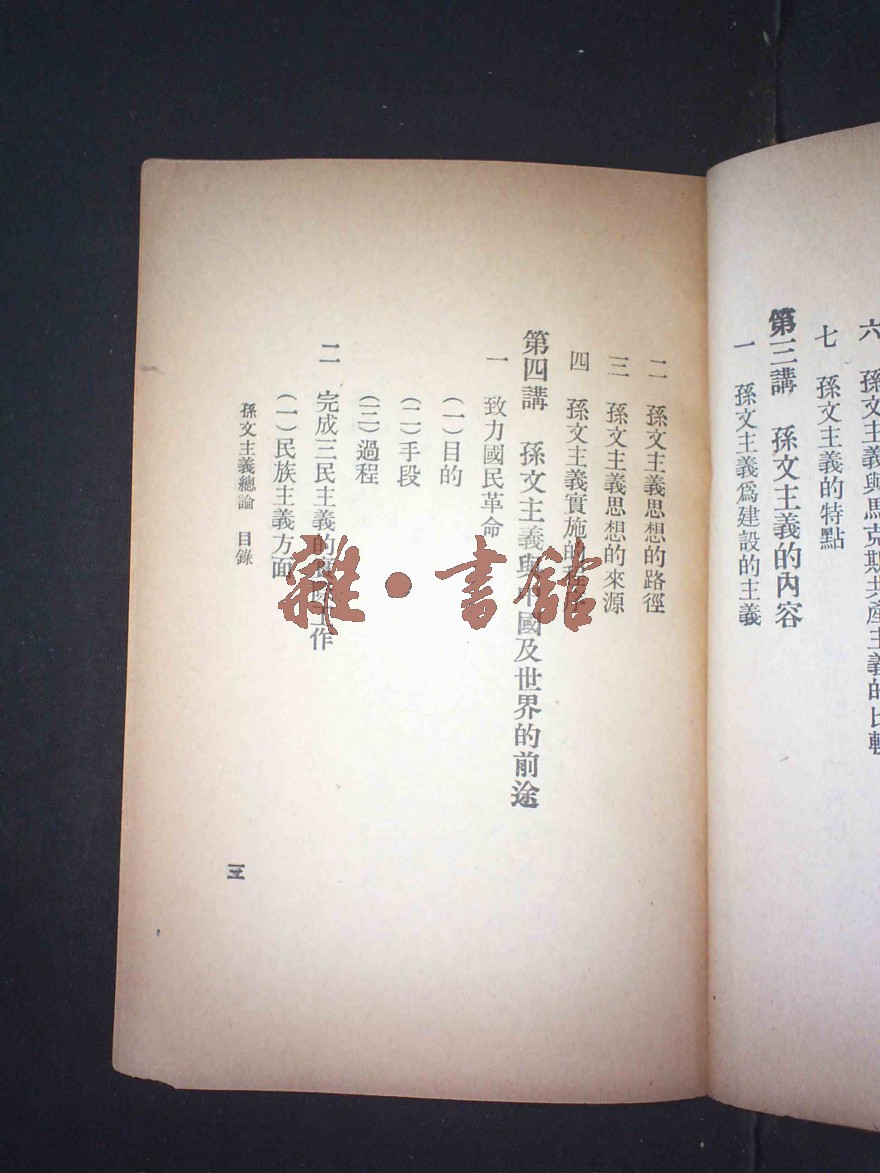 六 孫文主義與馬克斯共產主義的比較
七 孫文主義的特點
第三講 孫文主義的內容
一 孫文主義爲建設的主義
二 孫文主義思想的路徑
三 孫文主義思想的來源
四 孫文主義實施的程序
第四講 孫文主義與中國及世界的前途
一 致力國民革命
(一)目的
(二)手段
(三)過程
二 完成三民主義的實際工作
(一)民族主義方面
孫文主義總論 目錄
三
雜·書館